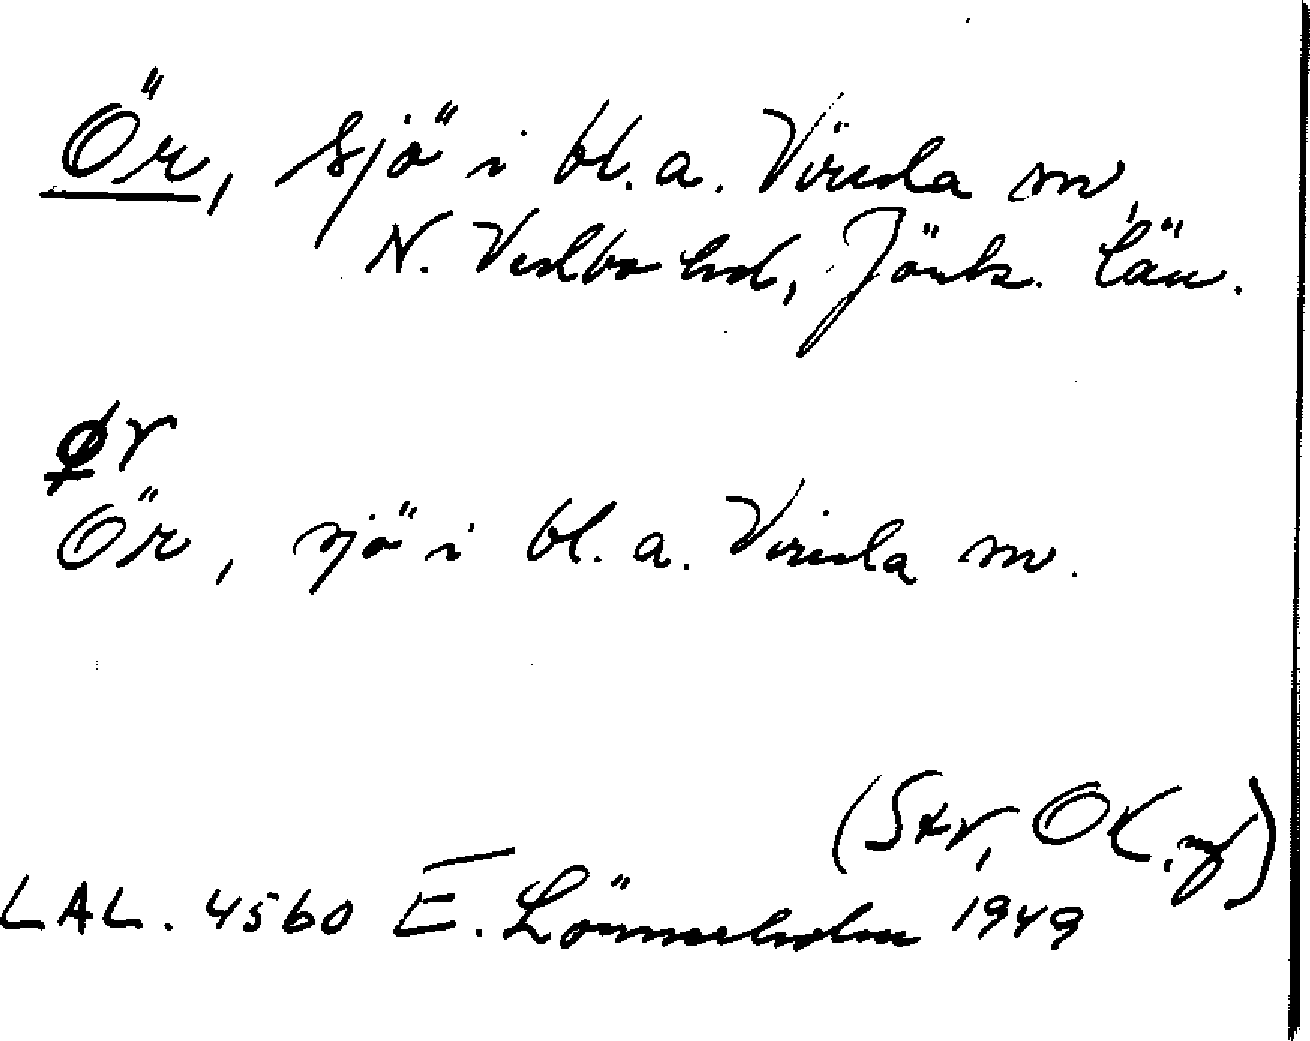 Ör, sjö i bl. a. Vireda sn,
N. Vedbo hd, Jönk. län.
ør
Ör, sjö i bl. a. Vireda sn.
(Str, OK,
LAL. 4560 E. Lönnerholm 1949